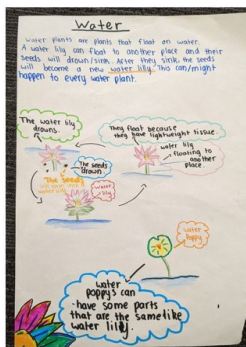 Water
Water plants are plants that float on water.
A water lily can float to another place and their
seeds will drown/sink. After they sink, the seeds
will become a new water lilly. This can/might
happen to every water plant.
The water lily
drowns.
They float because
they have lightweight tissue.
water lily
floating to
another
place.
The seeds
drown.
The seeds
water lily
water
lily
water
Poppy
water
poppys can
have some parts
that are the same like
water lilly.